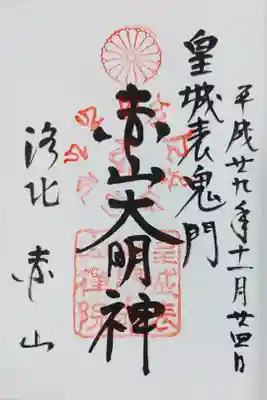 平成廿九年十一月廿四日
皇城表鬼門
赤山大明神
洛北 赤山